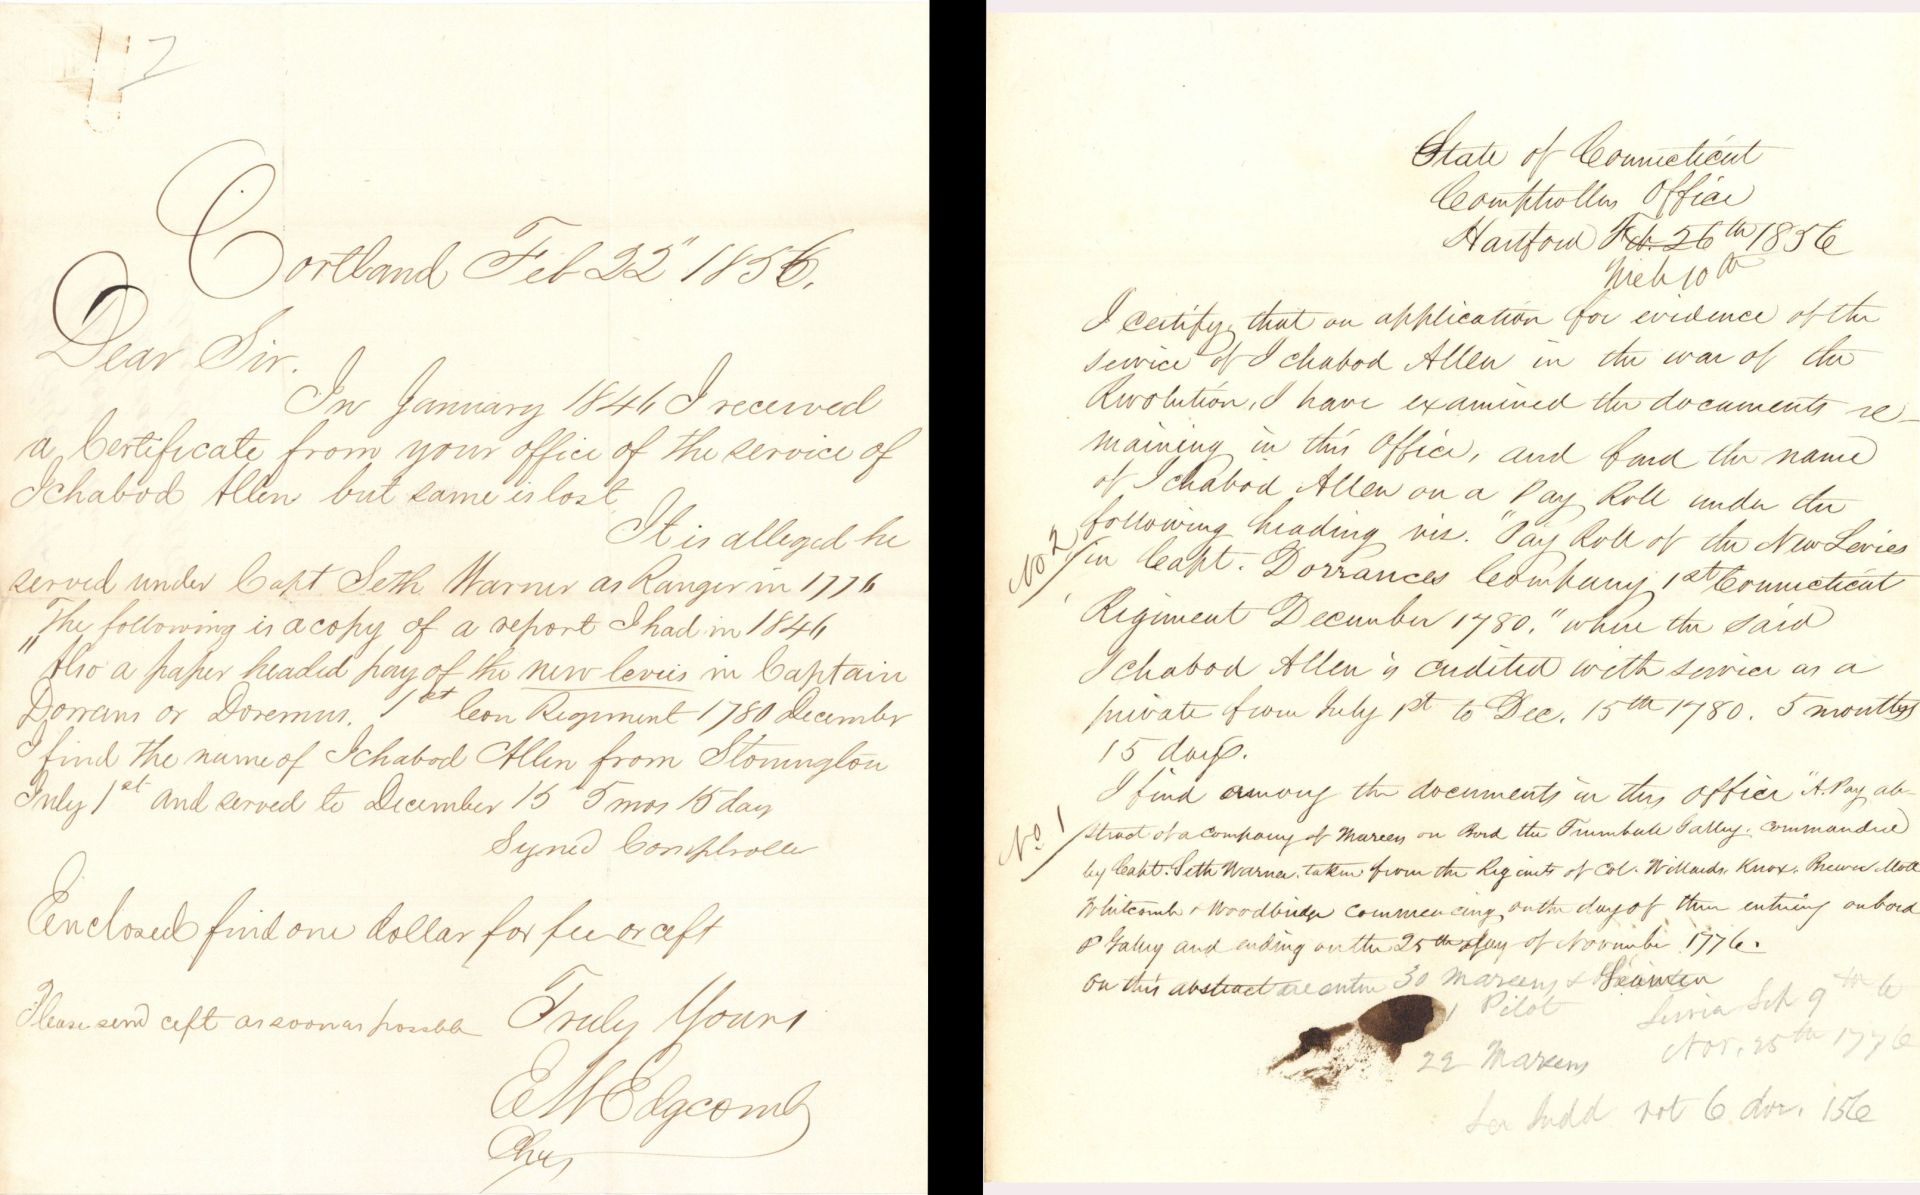 2
Cortland Feb 22" 1856.
Dear Sir.
In January 1846 I received
a Certificate from your office of the service of
Ichabod Allen but same is lost
It is alleged he
served under Capt Seth Warner as Ranger in 1776
The following is a copy of a report I had in 1846
"Also a paper headed pay of the new levies in Captain
Dorrans or Doremus. 1st Con Regiment 1780 December
I find the name of Ichabod Allen from Stonington
July 1st and served to December 15 5 mos 15 day
Syned Comptroller
Eenclosed find one dollar for fee or ceft
Please send ceft as soon as possable
Truly Yours
E W Edgcomb
State of Connecticut
Comptrollers Office
Hartford Feb. 26th 1856
Mch 10th
I certify, that on application for evidence of the
service of Ichabod Allen in the war of the
Revolution, I have examined the documents re-
maining in this Office, and find the name
of Ichabod Allen on a Pay Roll under the
following heading vis. "Pay Roll of the New Levies
No 2
in Capt. Dorrances Company 1st Connecticut
Regiment December 1780," where the said
Ichabod Allen is credited with service as a
private from July 1st to Dec. 15th 1780. 5 months
15 days.
I find among the documents in this office "A Pay ab-
No 1
stract of a company of Mareens on Bord the Trumbule Galley. commanded
by Capt. Seth Warner. taken from the Regimts of Col. Willards, Knox, Brewer, Mott
Whitcomb & Woodbridge commencing on the day of their entering onbord
sd Galley and ending on the 25th day of November 1776.
on this abstract are entire 30 Mareens & Seamen
1 Pilot
22 Mareens
Sep 9th
Nov. 25th 1776
Judd not 6 156